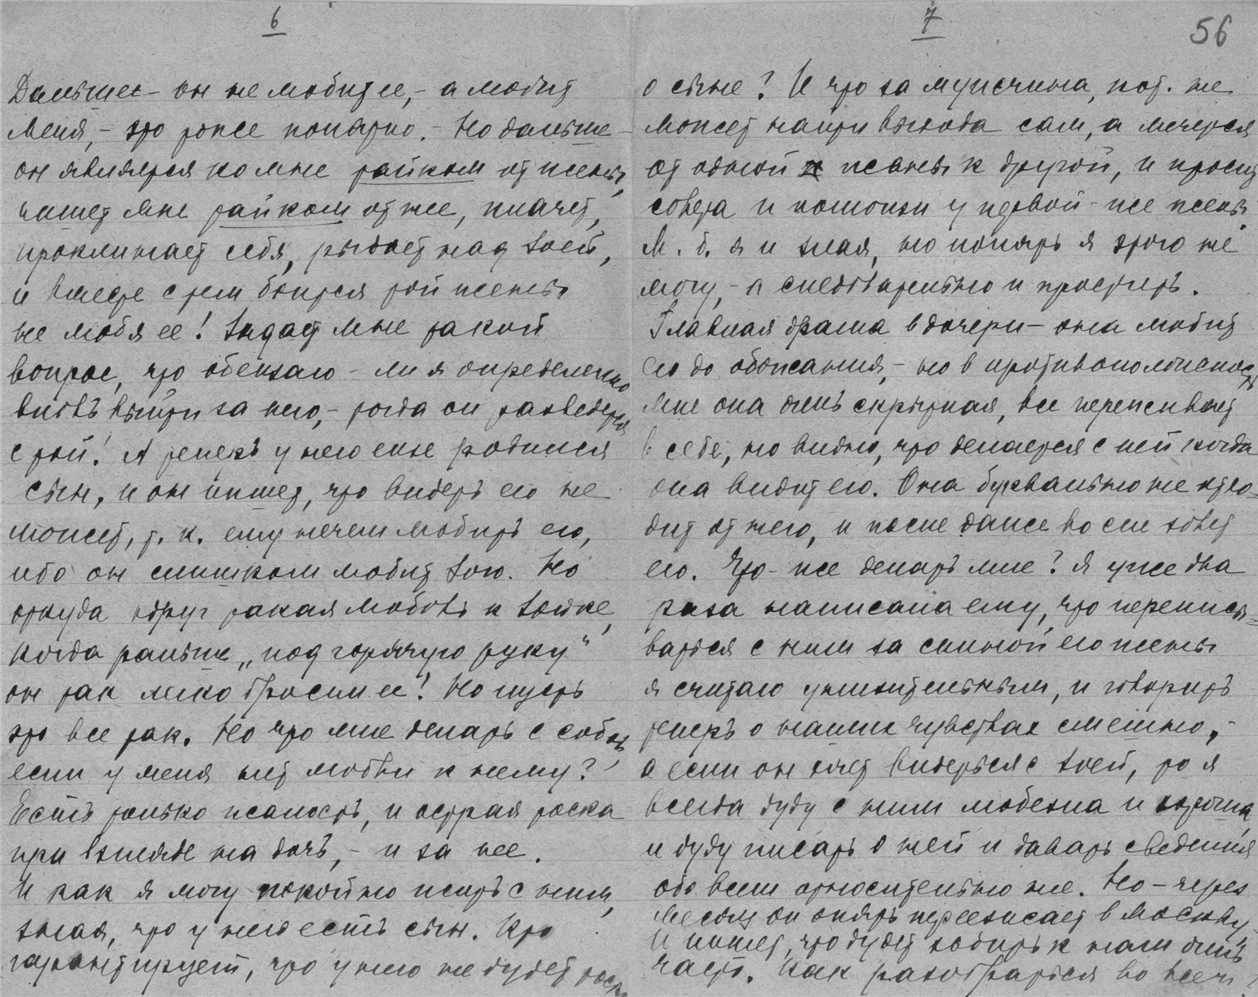 6
Дальше – он не любит ее, – а любит
меня, – это тоже понятно. – Но дальше –
он является ко мне тайком от жены,
пишет мне тайком от нее, плачет,
проклинает себя, рыдает над Зоей,
и вместе с тем боится той жены
не любя ее! Задает мне такой
вопрос, что обещаю – ли я определенно
вновь выйти за него, – тогда он разведется
с той! А теперь у него еще родился
сын, и он пишет, что видеть его не
может, т. к. ему нечем любить его,
ибо он слишком любит Зою. Но
откуда вдруг такая любовь к Зойке,
когда раньше „под горячую руку“
он так легко бросил ее! Но пусть
это все так. Но что мне делать с собой,
если у меня нет любви к нему?
Есть только жалость, и острая тоска
при взгляде на дочь, – и за нее.
И как я могу покойно жить с ним,
зная, что у него есть сын. Кто
гарантирует, что у него не будет тоски
7
56
о сыне? И что за мужчина, кот. не
может найти выхода сам, а мечется
от одной жены к другой, и просит
совета и помощи у первой – же жены.
М. б. я и злая, но понять я этого не
могу, – а следовательно и простить.
Главная драма в дочери – она любит
его до обожания, – но в противоположность
мне она очень скрытная, все переживает
в себе, но видно, что делается с ней когда
она видит его. Она буквально не отхо-
дит от него, и после даже во сне зовет
его. Что – же делать мне? Я уже два
раза написала ему, что переписы-
ваться с ним за спиной его жены
я считаю унизительным, и говорить
теперь о наших чувствах смешно, –
а если он хочет видеться с Зоей, то я
всегда буду с ним любезна и хороша,
и буду писать о ней и давать сведения
обо всем относительно нее. Но – через
месяц он опять переезжает в Москву,
и пишет, что будет ходить к нам очень
часто. Как разобраться во всем